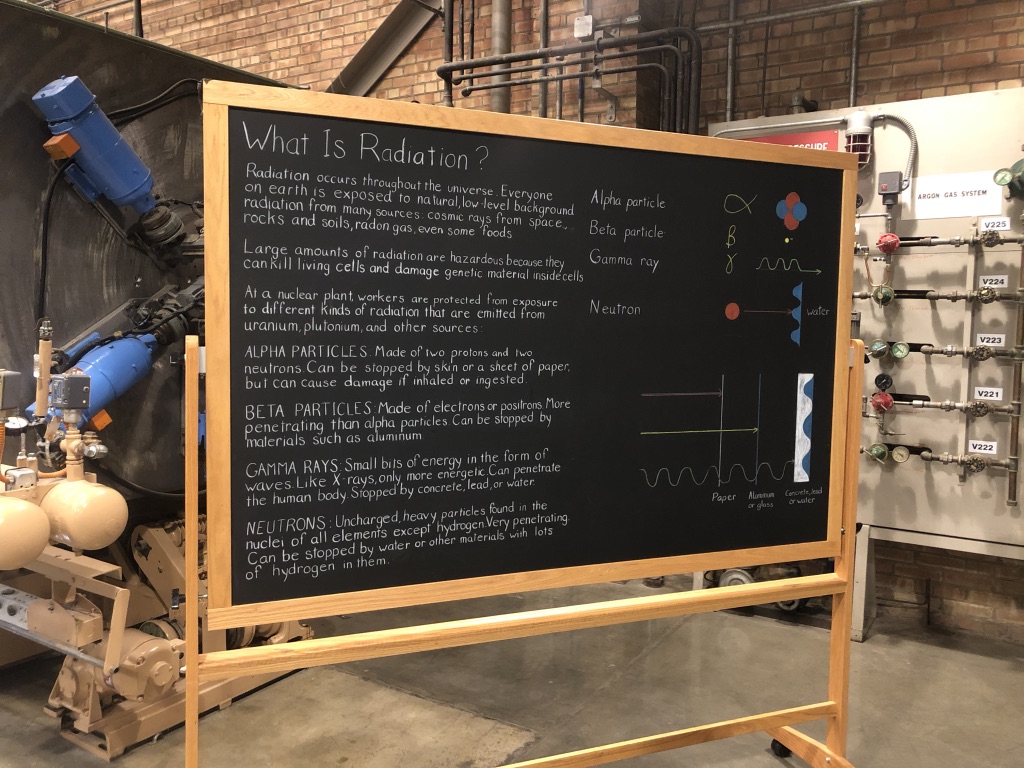 What Is Radiation?
Radiation occurs throughout the universe. Everyone
on earth is exposed to natural, low-level background
radiation from many sources: cosmic rays from space,
rocks and soils, radon gas, even some foods
Large amounts of radiation are hazardous because they
can kill living cells and damage genetic material inside cells
At a nuclear plant, workers are protected from exposure
to different kinds of radiation that are emitted from
uranium, plutonium, and other sources:
ALPHA PARTICLES: Made of two protons and two
neutrons. Can be stopped by skin or a sheet of paper,
but can cause damage if inhaled or ingested.
BETA PARTICLES: Made of electrons or positrons. More
penetrating than alpha particles. Can be stopped by
materials such as aluminum
GAMMA RAYS: Small bits of energy in the form of
waves. Like X-rays, only more energetic. Can penetrate
the human body. Stopped by concrete, lead, or water.
NEUTRONS: Uncharged, heavy particles found in the
nuclei of all elements except hydrogen. Very penetrating.
Can be stopped by water or other materials with lots
of hydrogen in them.
Alpha particle α
Beta particle β
Gamma ray γ
Neutron water
Paper
Aluminum
or glass
Concrete, lead
or water
ARGON GAS SYSTEM
V225
V224
V223
V221
V222